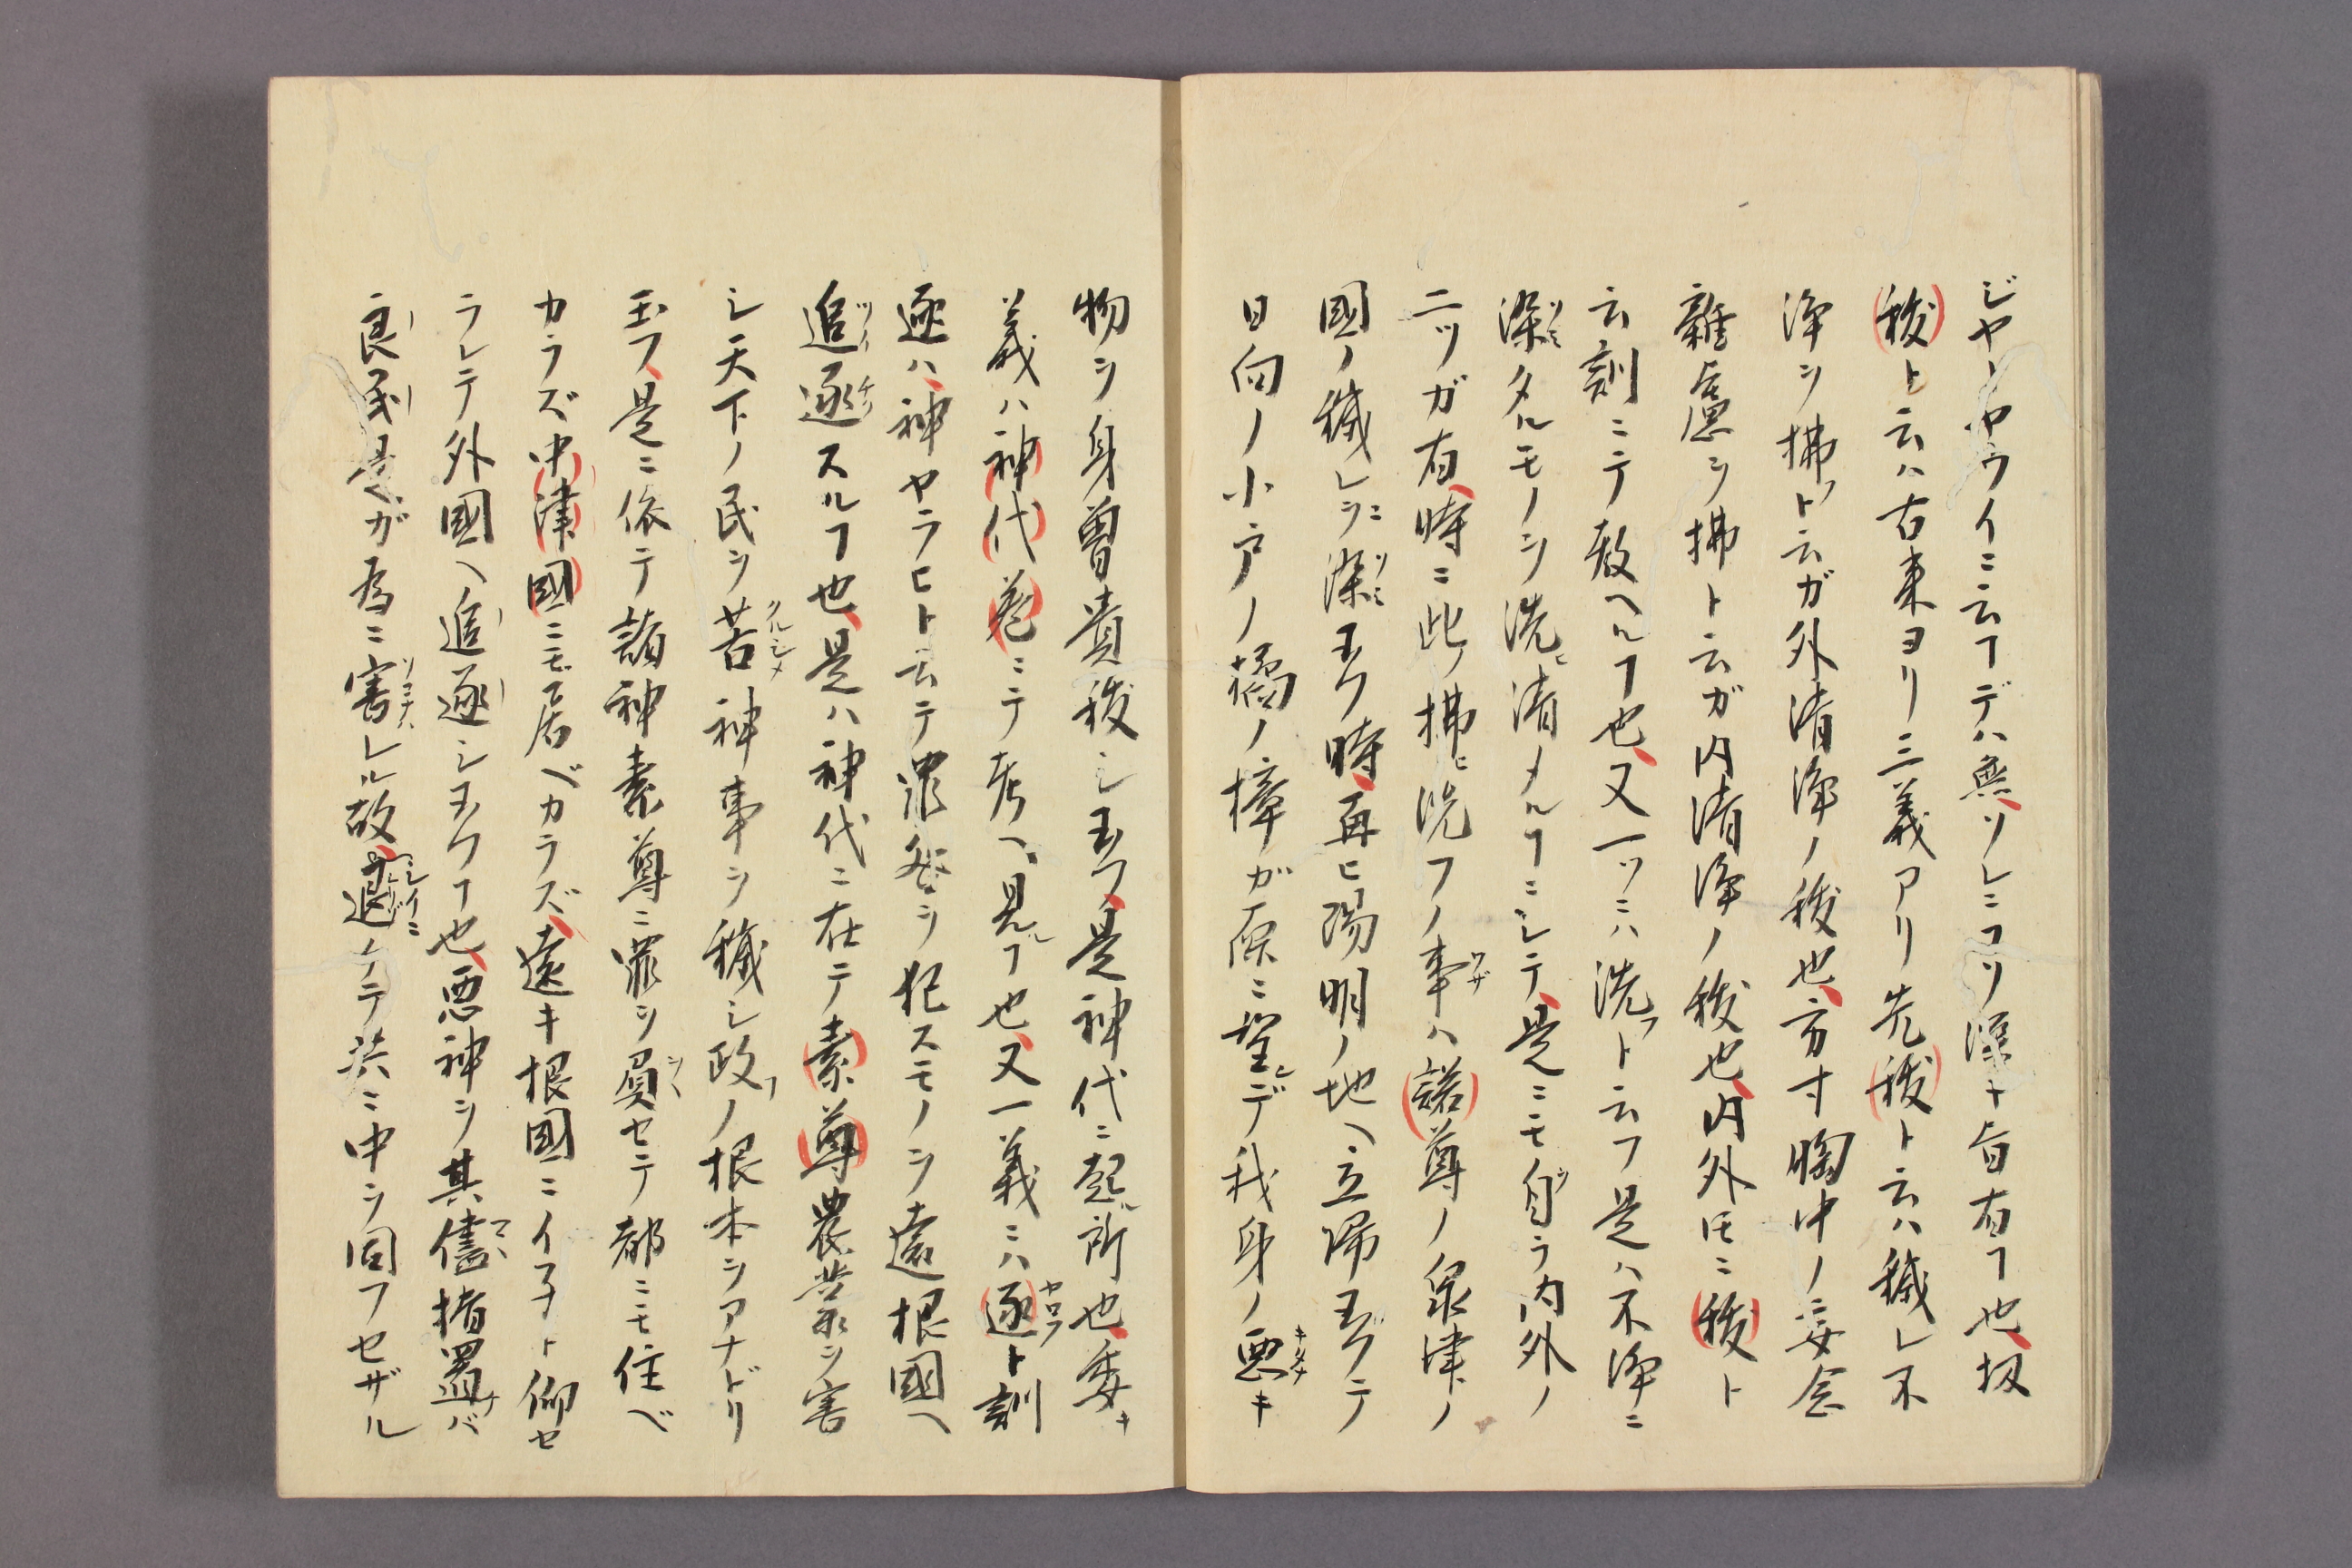 ジヤノヤウイニ云フデハ無ソレニフリ深キ旨有フ也扨
祓ト云ハ古来ヨリ三義アリ先祓ト云ハ穢レ不
浄ヲ拂フト云ガ外清浄ノ祓也方寸胸中ノ妄念
雜慮ヲ拂ト云ガ内清浄ノ祓也内外𪜈ニ祓ト
云訓ニテ敎ヘルヿ也又一ツニハ洗フト云フ是ハ不浄ニ
染タルモノヲ洗ヒ清メルヿニシテ是ニモ自ラ内外ノ
二ツガ有時ニ此ノ拂ヒ洗フノ事ハ諾尊ノ泉津ノ
國ノ穢レニ染玉フ時再ヒ陽明ノ地ヘ立帰玉フテ
日向ノ小戸ノ橘ノ檍ガ原ニ望デ我身ノ悪キ
物ヲ身曽貴祓シ玉フ是神代ニ起ル所也委キ
義ハ神代巻ニテ考ヘ見ルヿ也又一義ニハ逐ト訓
逐ハ神ヤラヒト云テ罪咎ヲ犯スモノヲ遠根國ヘ
追逐スルヿ也是ハ神代ニ在テ素尊農業ヲ害
シ天下ノ民ヲ苦神事ヲ穢シ政ノ根本ヲアナドリ
玉フ是ニ依テ諸神素尊ニ罪ヲ負セテ都ニモ住ベ
カラズ中津國ニモ居ベカラズ遠キ根國ニイ子ト仰セ
ラレテ外國ヘ追逐シ玉フヿ也悪神ヲ其儘措置バ
良民是ガ為ニ害レル故退ケテ共ニ中ヲ同フセザル